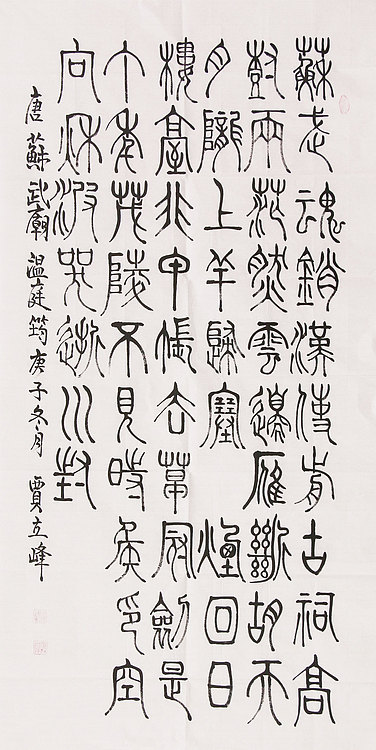 蘇武魂銷漢使前古祠高
樹兩茫然雲邊雁斷胡天
月隴上羊歸塞煙回日
樓臺非甲帳去草冠劍是
丁年茂陵不見時侯印空
向秋波哭逝川封
唐蘇武廟温庭筠庚子冬月賈立峰